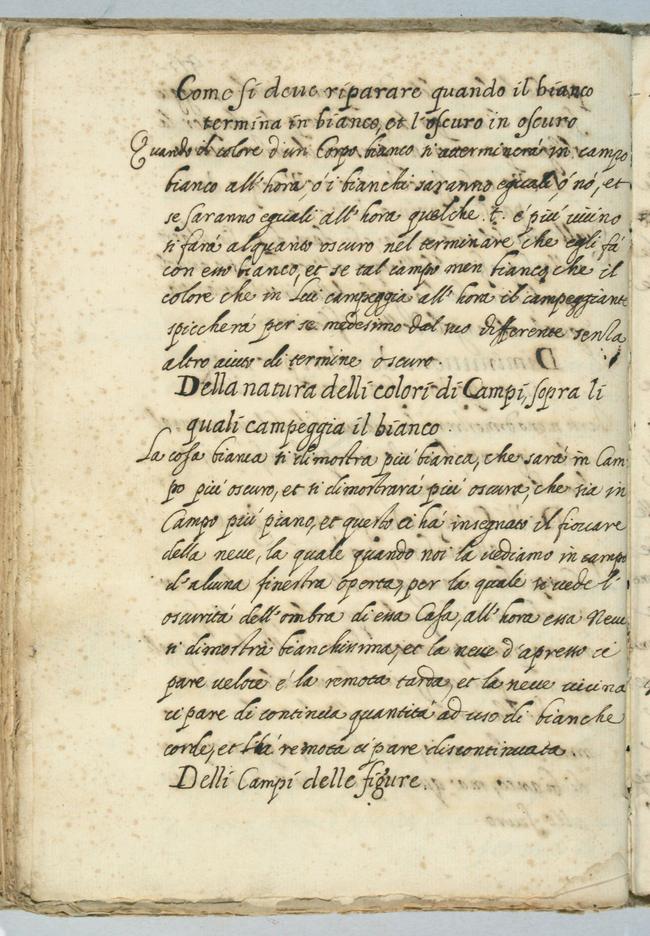 Come si deue riparare quando il bianco
termina in bianco, et l'oscuro in oscuro
Quando il colore d'un Corpo bianco si atterminerá in campo
bianco all'hora, ó i bianchi saranno eguali, ó nó, et
se saranno eguali all'hora quelche .t. é piú uicino
si fará alquanto oscuro nel terminare che egli fá
con esso bianco, et se tal campo men bianco, che il
colore che in Lui campeggia all'hora il campeggiante
spiccherá per se medesimo dal suo differente senza
altro aiuto di termine óscuro.
Della natura delli colori di Campi, sopra li
quali campeggia il bianco.
La cosa bianca si dimostra piú bianca, che sará in Cam
po piú oscuro, et si dimostrará piú oscura, che sia in
Campo piú piano, et questo ci há insegnato il fioccare
della neue, la quale quando noi la uediamo in campo
d'alcuna finestra operta, per la quale si uede l'
oscuritá dell'ombra di essa Casa, all'hora essa Neue
si dimostra bianchissima, et la neue d'apresso ci
pare veloce é la remota tarda, et la neue uicina
ci pare di continua quantitá ad uso di bianche
corde, et la remota ci pare discontinuata.
Delli Campi delle figure.